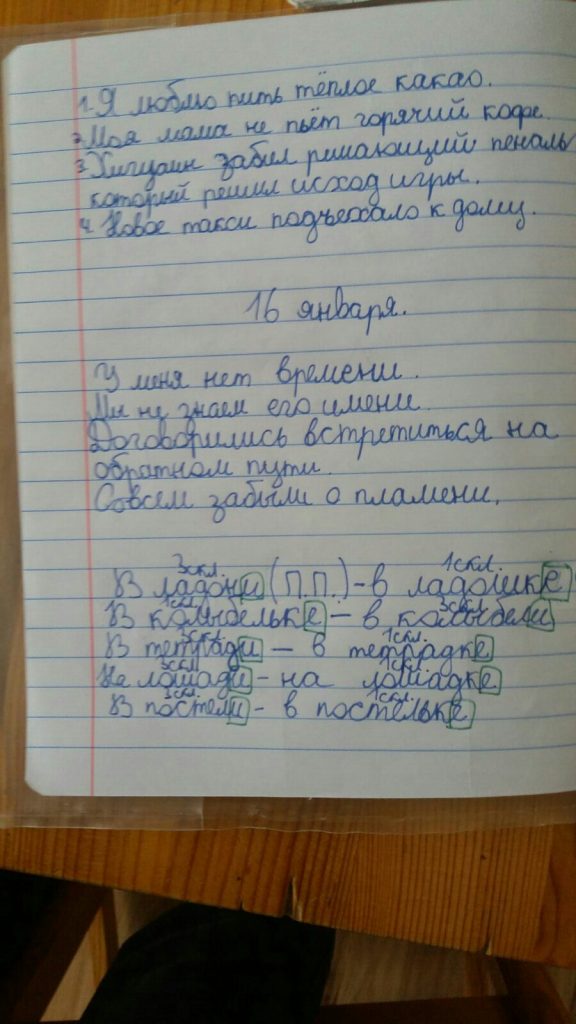 1. Я люблю пить тёплое какао.
2. Моя мама не пьёт горячий кофе.
3. Хигуаин забил решающий пеналь
который решил исход игры.
4. Новое такси подъехало к дому.
16 января.
У меня нет времени.
Мы не знаем его имени.
Договорились встретиться на
обратном пути.
Совсем забыли о пламени.
3скл. 1скл.
В ладони (П.П.) - в ладошке
1скл. 3скл.
В колыбельке - в колыбели
3скл. 1скл.
В тетради - в тетрадке
3скл. 1скл.
На лошади - на лошадке
3скл. 1скл.
В постели - в постельке